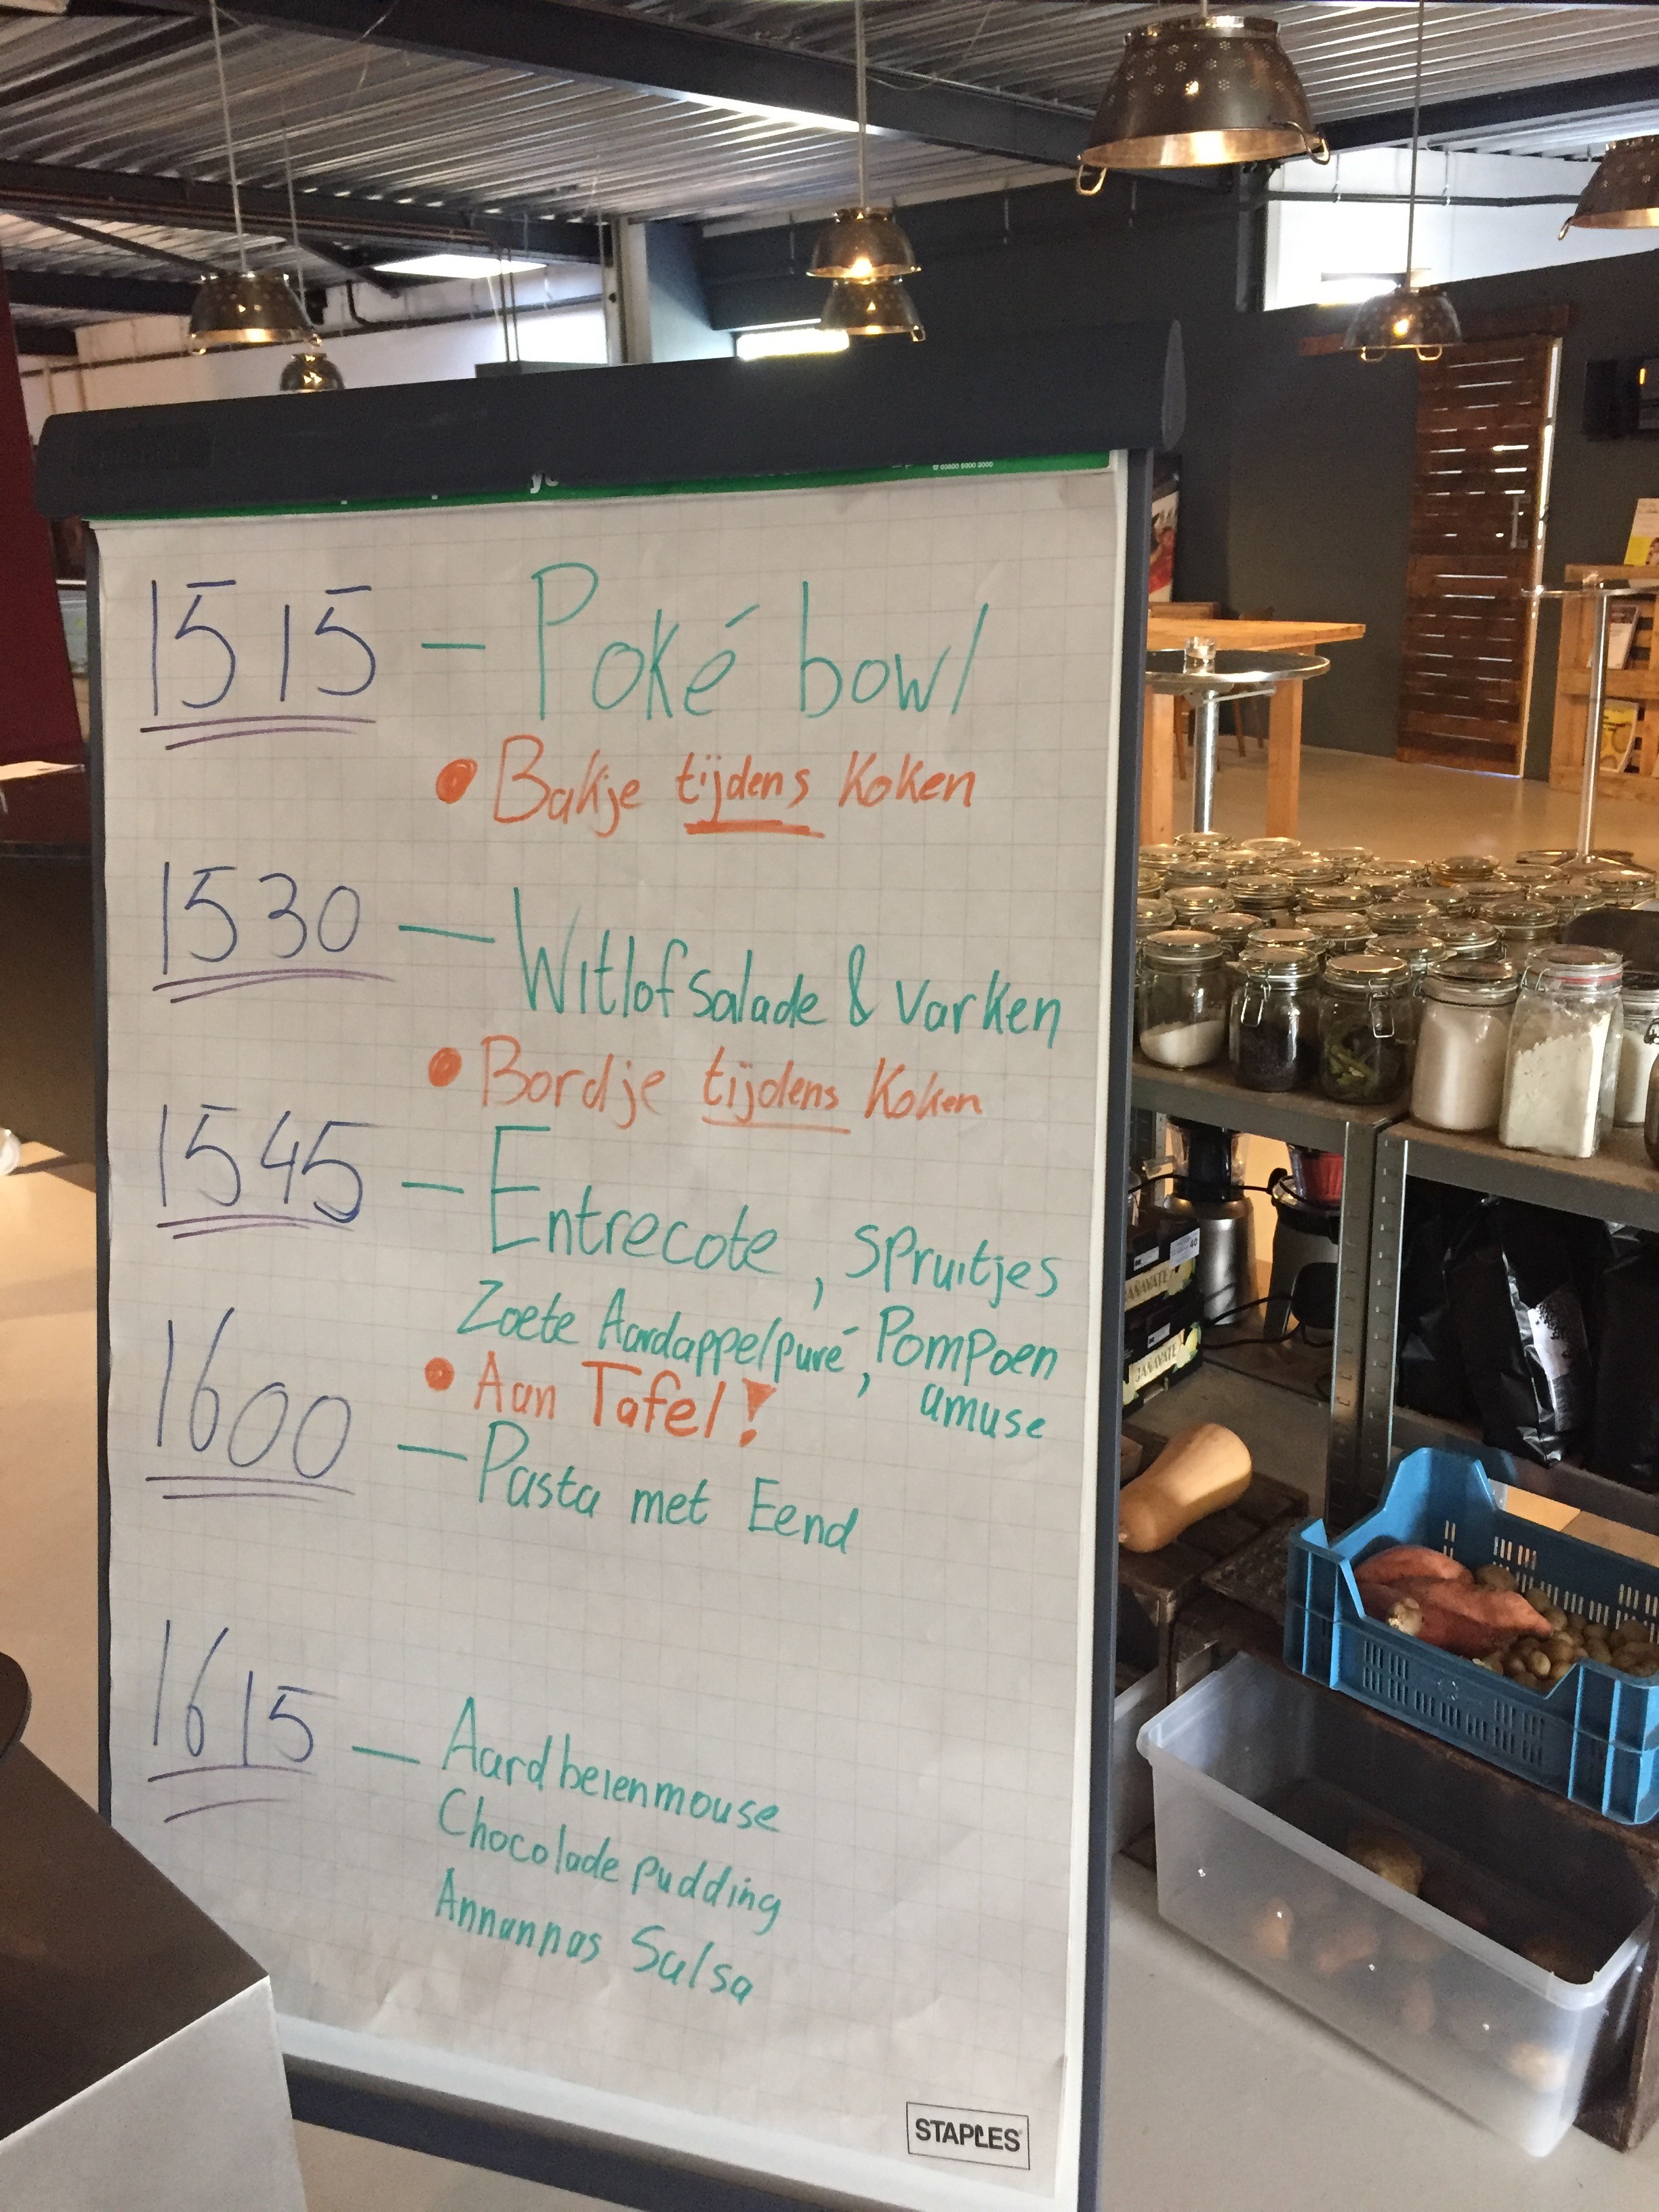 1515 — Poké bowl
• Bakje tijdens koken
1530 — Witlofsalade & varken
• Bordje tijdens koken
1545 — Entrecote, spruitjes
Zoete Aardappelpuré, Pompoen
amuse
• Aan Tafel!
1600 — Pasta met Eend
1615 — Aardbeienmouse
Chocolade pudding
Annannas Salsa
STAPLES